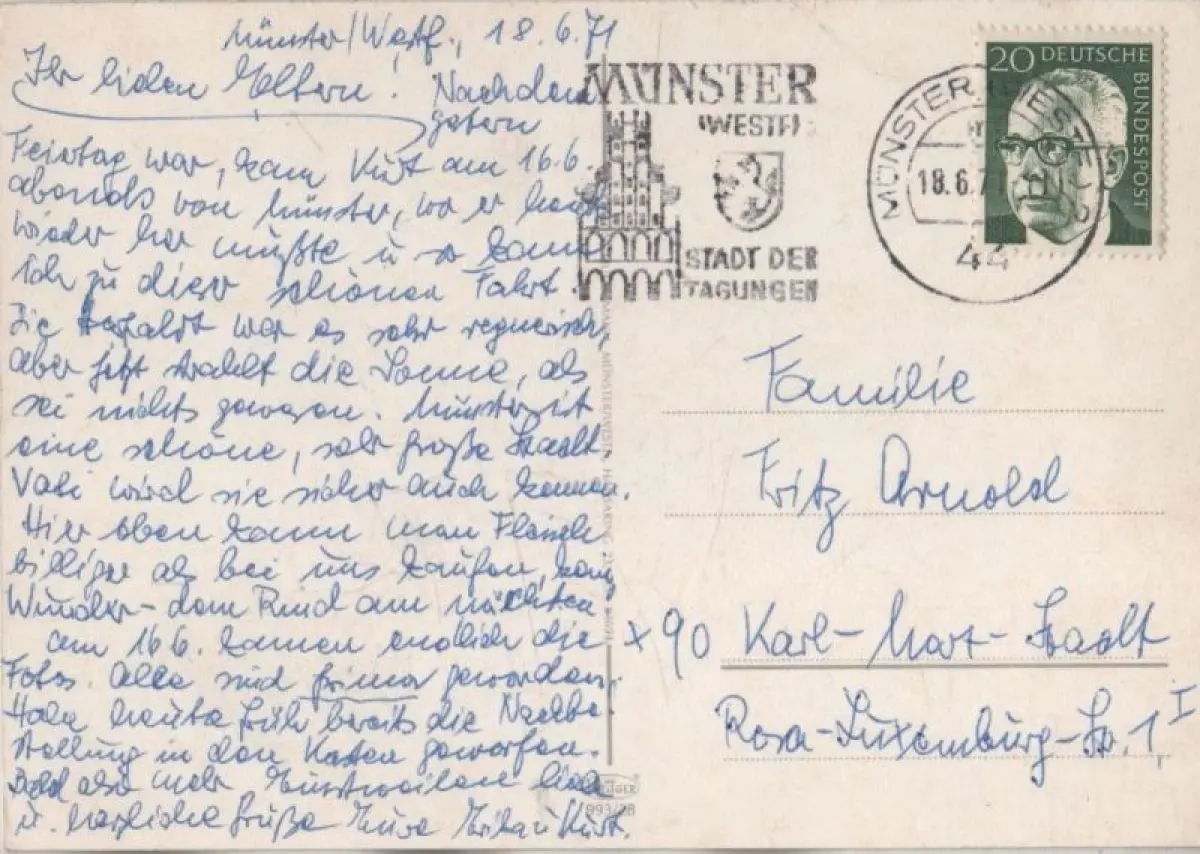 Münster/Westf., 18.6.71
Ihr lieben Eltern! Nachdem
gestern
Feiertag war, kam Kurt am 16.6.
abends von Münster, wo er heute
wieder her mußte u. so kam
ich zu dieser schönen Fahrt.
Die Herfahrt war es sehr regnerisch,
aber jetzt strahlt die Sonne, als
sei nichts gewesen. Münster ist
eine schöne, sehr große Stadt
Vati wird sie sicher auch kennen.
Hier oben kann man Fleisch
billiger als bei uns kaufen, kein
Wunder - dem Rind am nächsten
am 16.6. kamen endlich die
Fotos. Alle sind prima geworden,
Habe heute früh bereits die Nachbe-
stellung in den Kasten geworfen.
Bald also mehr Einstweilen liebe
u. herzliche Grüße Eure Erika u Kurt.
MÜNSTER
(WESTF)
STADT DER
TAGUNGEN
MÜNSTER, (WESTF)
18.6.71
44
20 DEUTSCHE
BUNDESPOST
Familie
Fritz Arnold
x 90 Karl-Marx-Stadt
Rosa-Luxemburg-Str. 1 I
MÜNSTER/WESTF.
KRÜGER
993/28